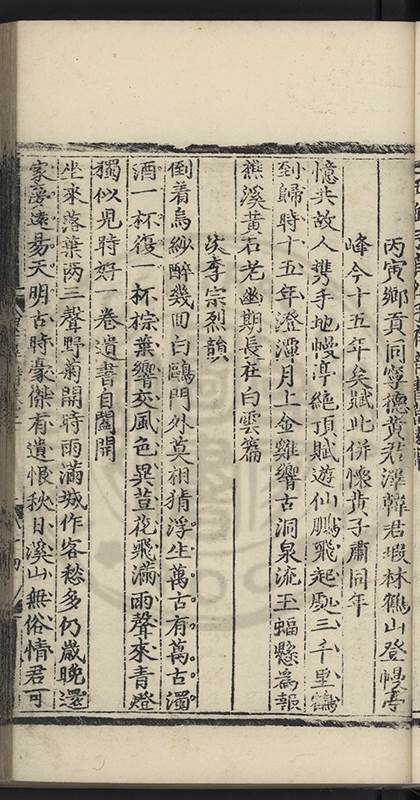 丙寅鄉貢同寧德黃君澤韓君瑕林鶴山登幔亭
峰今十五年矣賦此併懷黃子肅同年
憶共故人携手地幔亭絶頂賦遊仙鵬飛起處三千里鶴
到歸時十五年澄潭月上金雞響古洞泉流玉蝠懸為報
樵溪黃石老幽期長在白雲篇
次李宗烈韻
倒着烏紗醉幾回白鷗門外莫相猜浮生萬古有萬古濁
酒一杯復一杯棕葉響交風色異荳花飛滿雨聲來青燈
獨似児時好一卷遺書自闔開
坐來落葉兩三聲野菊開時雨滿城作客愁多仍歲晚還
家夢遠易天明古時豪傑有遺恨秋日溪山無俗情君可